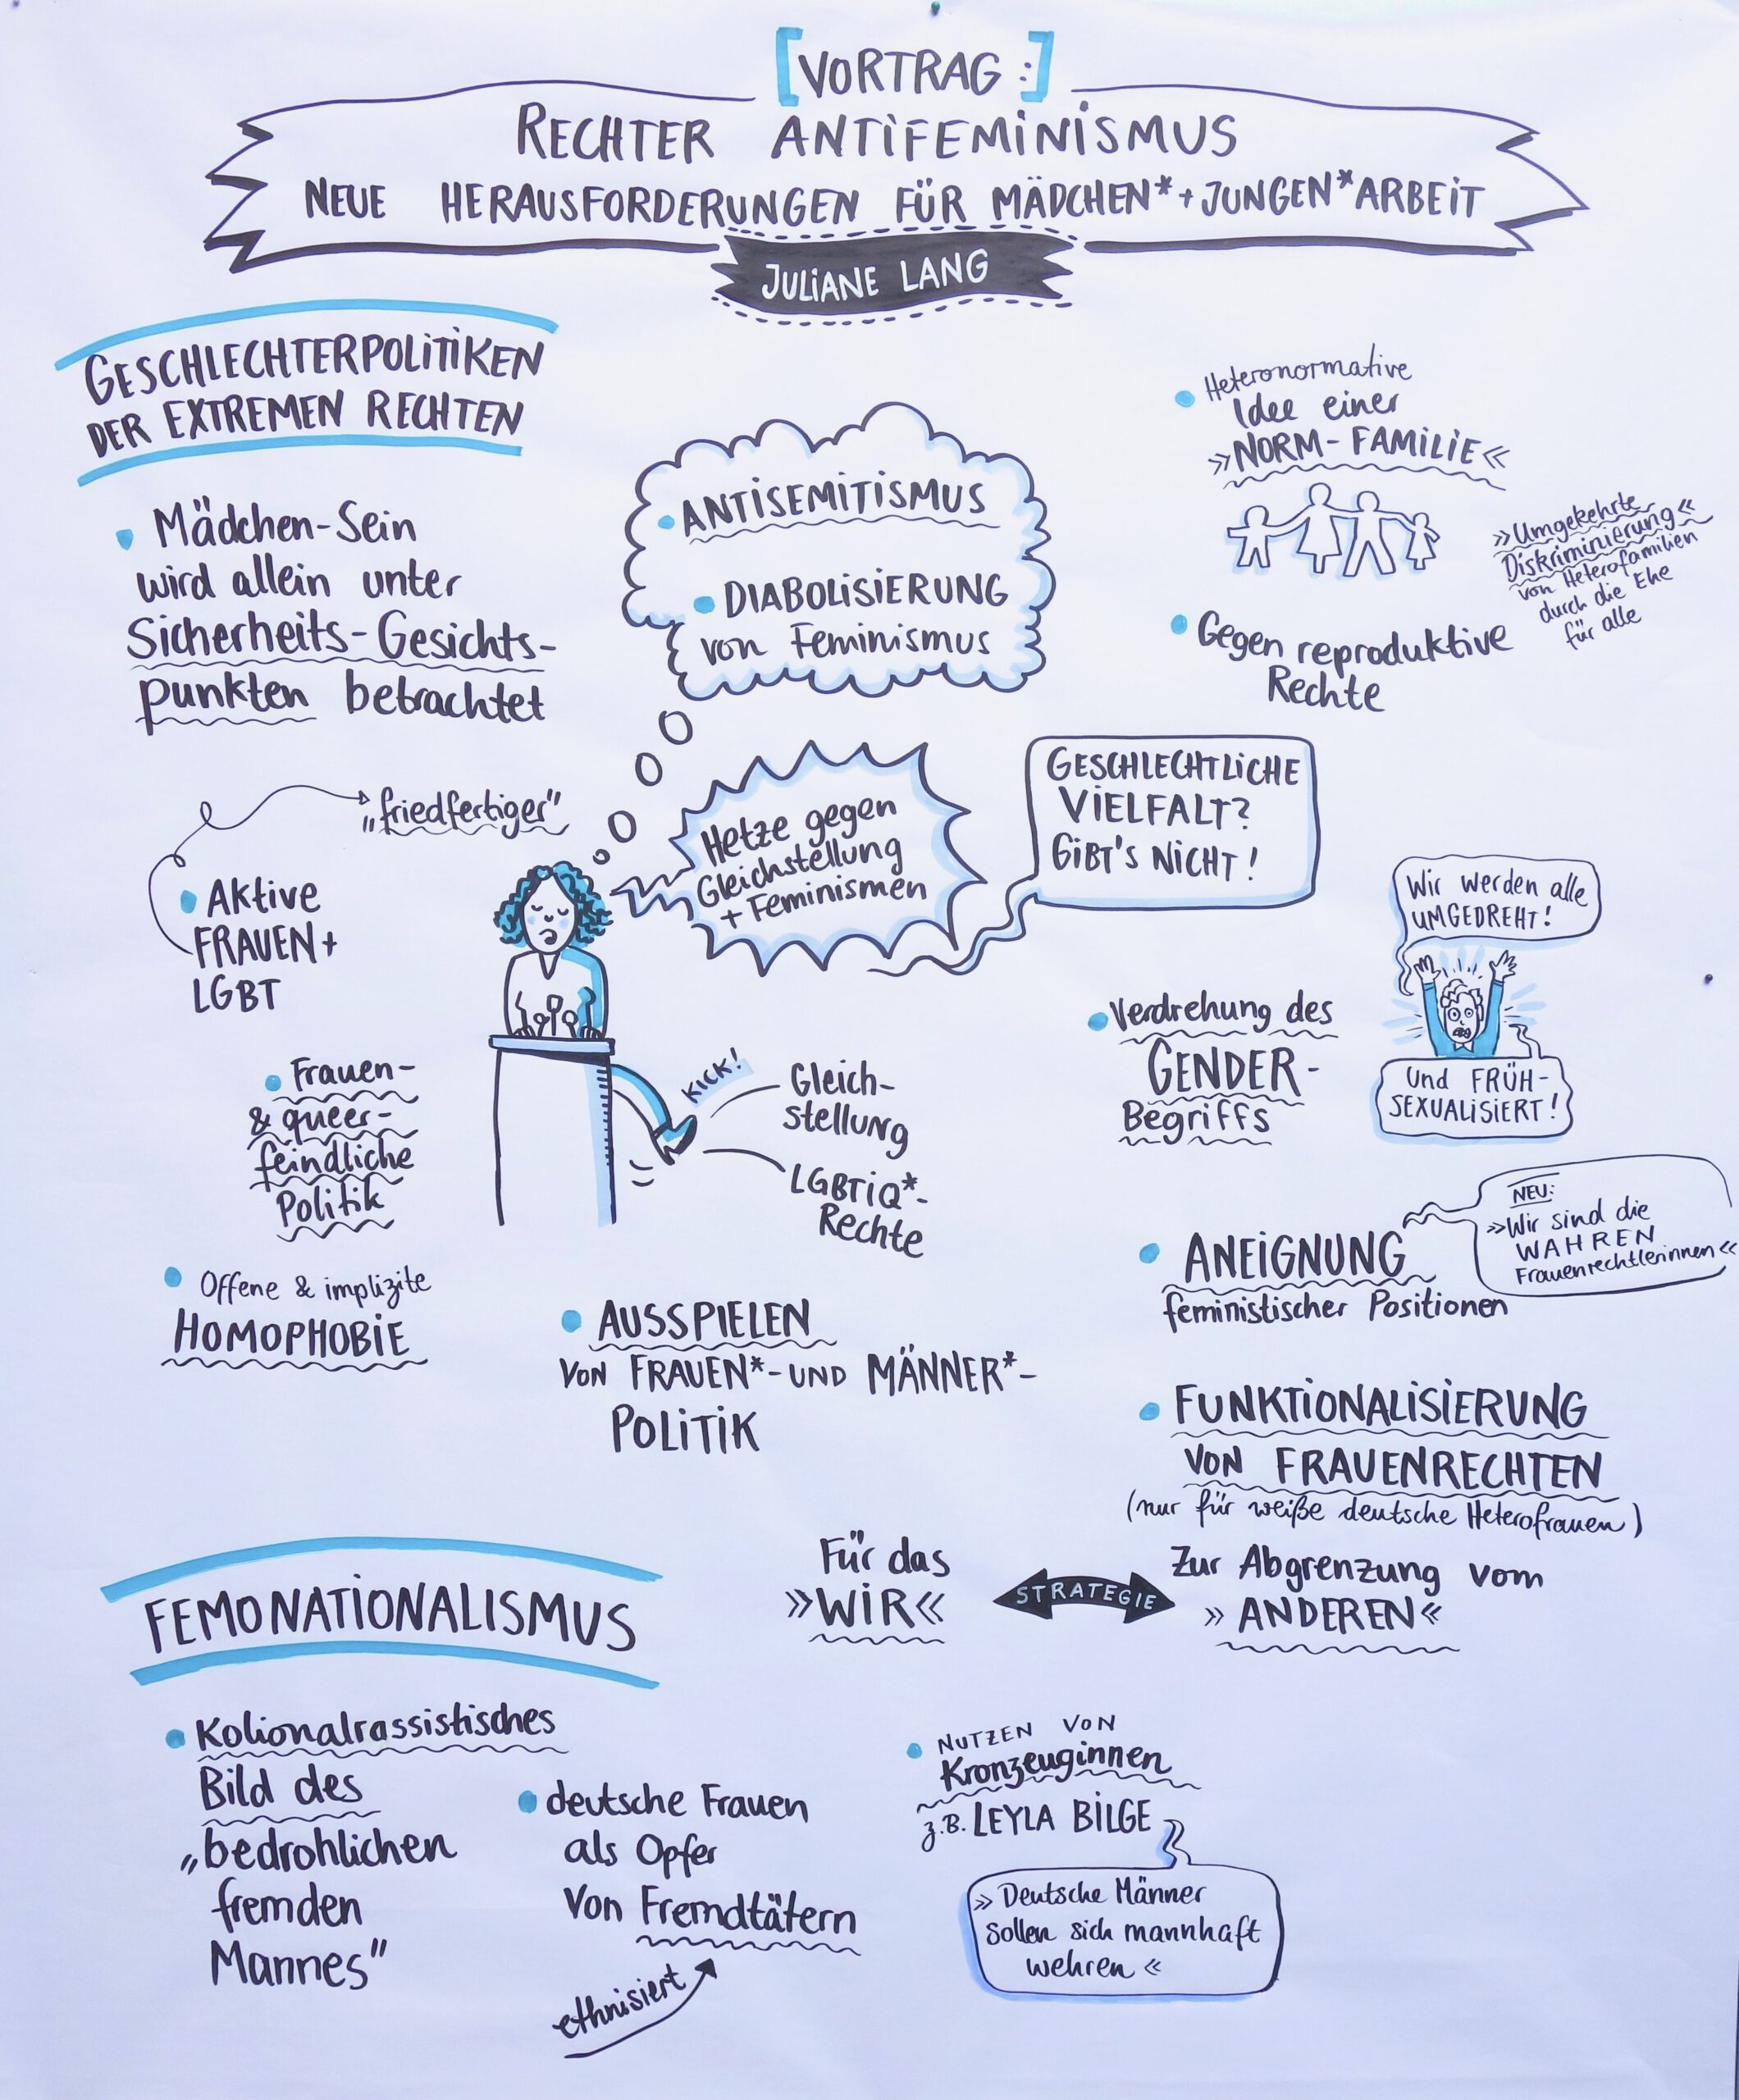 [VORTRAG:]
RECHTER ANTIFEMINISMUS
NEUE HERAUSFORDERUNGEN FÜR MÄDCHEN*+JUNGEN*ARBEIT
JULIANE LANG
GESCHLECHTERPOLITIKEN
DER EXTREMEN RECHTEN
Mädchen-Sein
wird allein unter
Sicherheits-Gesichts-
punkten betrachtet
ANTISEMITISMUS
DIABOLISIERUNG
von Feminismus
Heteronormative
Idee einer
»NORM-FAMILIE«
»Umgekehrte
Diskriminierung«
von Heterofamilien
durch die Ehe
für alle
Gegen reproduktive
Rechte
„friedfertiger"
Aktive
FRAUEN+
LGBT
Hetze gegen
Gleichstellung
+ Feminismen
GESCHLECHTLICHE
VIELFALT?
GIBT'S NICHT!
Wir werden alle
UMGEDREHT!
Und FRÜH-
SEXUALISIERT!
Verdrehung des
GENDER-
Begriffs
Frauen-
& queer-
feindliche
Politik
KICK!
Gleich-
stellung
LGBTIQ*-
Rechte
Offene & implizite
HOMOPHOBIE
AUSSPIELEN
VON FRAUEN*-UND MÄNNER*-
POLITIK
ANEIGNUNG
feministischer Positionen
NEU:
»Wir sind die
WAHREN
Frauenrechtlerinnen«
FUNKTIONALISIERUNG
VON FRAUENRECHTEN
(nur für weiße deutsche Heterofrauen)
Für das
»WIR«
STRATEGIE
Zur Abgrenzung vom
»ANDEREN«
FEMONATIONALISMUS
Kolionalrassistisches
Bild des
„bedrohlichen
fremden
Mannes"
deutsche Frauen
als Opfer
von Fremdtätern
ethnisiert
NUTZEN VON
Kronzeuginnen
z.B. LEYLA BILGE
»Deutsche Männer
sollen sich mannhaft
wehren«